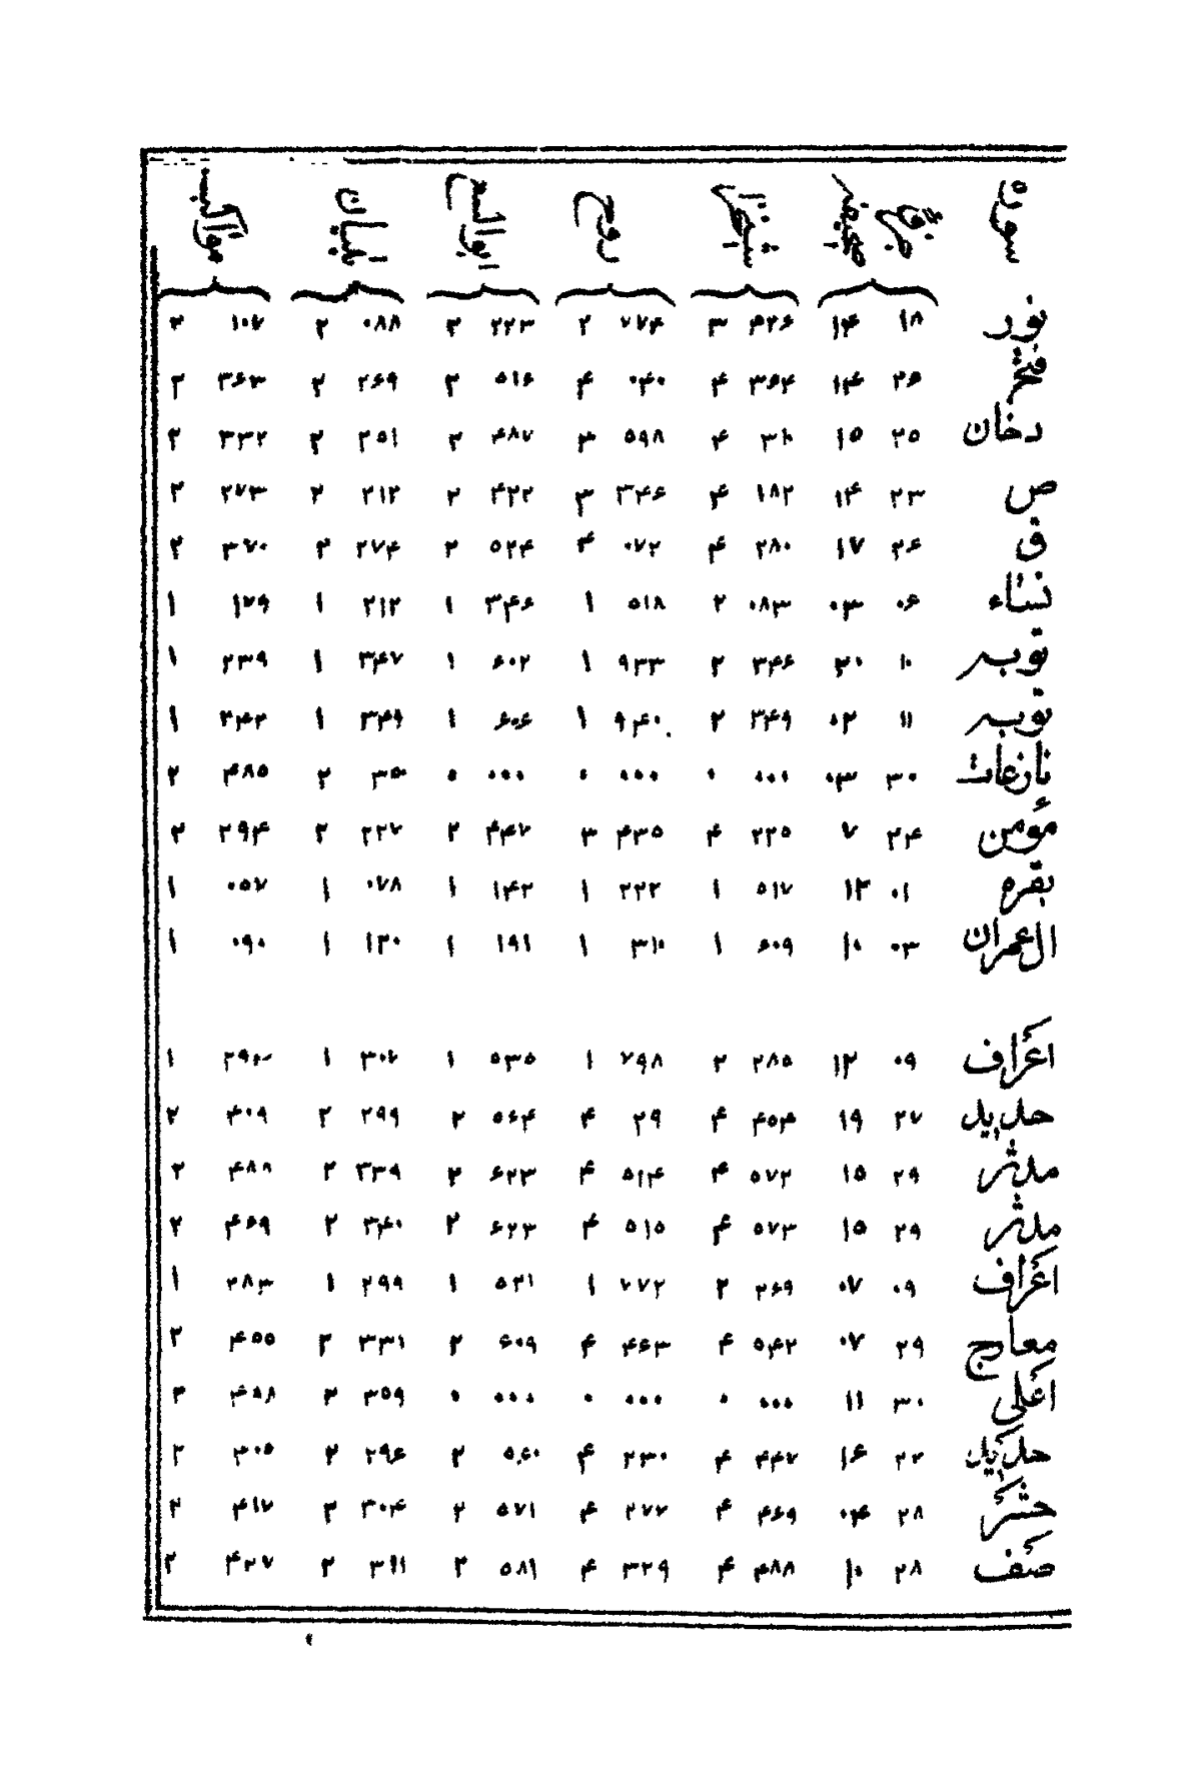 سوره جزو صحیفه شیخ روح ابوالسع تبیان مواکب
نور ۱۸ ۱۴ ۴۲۶ ۳ ۷۷۴ ۲ ۲۲۳ ۲ ۰۸۸ ۲ ۱۰۷ ۲
فتح ۲۶ ۱۴ ۳۶۴ ۴ ۰۴۰ ۴ ۵۱۶ ۲ ۲۶۹ ۲ ۳۶۳ ۲
دخان ۲۵ ۱۵ ۳۱۰ ۴ ۵۹۸ ۳ ۴۸۷ ۲ ۲۵۱ ۲ ۳۳۲ ۲
ص ۲۳ ۱۴ ۱۸۲ ۴ ۳۴۶ ۳ ۴۲۲ ۲ ۲۱۲ ۲ ۲۷۳ ۲
ق ۲۶ ۱۷ ۳۸۰ ۴ ۰۷۲ ۴ ۵۲۴ ۲ ۲۷۴ ۲ ۳۷۰ ۲
نساء ۰۶ ۰۳ ۰۸۳ ۲ ۵۱۸ ۱ ۳۴۶ ۱ ۲۱۲ ۱ ۱۷۹ ۱
توبه ۱۰ ۲۰ ۳۴۶ ۲ ۹۳۳ ۱ ۶۰۲ ۱ ۳۴۷ ۱ ۲۳۹ ۱
توبه ۱۱ ۰۲ ۳۴۹ ۲ ۹۴۰ ۱ ۶۰۶ ۱ ۳۴۹ ۱ ۲۴۲ ۱
نازعات ۳۰ ۰۳ ۰۰۰ ۰ ۰۰۰ ۰ ۰۰۰ ۰ ۳۵۰ ۲ ۴۸۵ ۲
مؤمن ۲۴ ۷ ۲۲۵ ۴ ۴۳۵ ۳ ۴۴۷ ۲ ۲۲۷ ۲ ۲۹۴ ۲
بقره ۰۱ ۱۲ ۵۱۷ ۱ ۲۲۲ ۱ ۱۴۲ ۱ ۰۷۸ ۱ ۰۵۷ ۱
ال عمران ۰۳ ۱۰ ۶۰۹ ۱ ۳۱۰ ۱ ۱۹۱ ۱ ۱۲۰ ۱ ۰۹۰ ۱
اعراف ۰۹ ۱۲ ۲۸۵ ۲ ۷۹۸ ۱ ۵۳۵ ۱ ۳۰۷ ۱ ۱
حدید ۲۷ ۱۹ ۴۵۴ ۴ ۲۹ ۴ ۵۶۴ ۲ ۲۹۹ ۲ ۴۰۹ ۲
مدثر ۲۹ ۱۵ ۵۷۲ ۴ ۵۱۴ ۴ ۶۲۳ ۲ ۳۳۹ ۲ ۲
مدثر ۲۹ ۱۵ ۵۷۳ ۴ ۵۱۵ ۴ ۶۲۳ ۲ ۳۴۰ ۲ ۴۶۹ ۲
اعراف ۰۹ ۰۷ ۲۶۹ ۲ ۷۷۲ ۱ ۵۲۱ ۱ ۲۹۹ ۱ ۲۸۳ ۱
معارج ۲۹ ۰۷ ۵۴۲ ۴ ۴۶۳ ۴ ۶۰۹ ۲ ۳۳۱ ۲ ۴۵۵ ۲
اعلی ۳۰ ۱۱ ۰۰۰ ۰ ۰۰۰ ۰ ۰۰۰ ۰ ۳۵۹ ۲ ۴۸۸ ۲
حدید ۲۷ ۱۶ ۴۴۷ ۴ ۲۳۰ ۴ ۵۶۰ ۲ ۲۹۶ ۲ ۲
حشر ۲۸ ۰۴ ۴۶۹ ۴ ۲۷۷ ۴ ۵۷۱ ۲ ۳۰۴ ۲ ۴۱۷ ۲
صف ۲۸ ۱۰ ۴۸۸ ۴ ۳۲۹ ۴ ۵۸۱ ۲ ۳۱۱ ۲ ۴۲۷ ۲